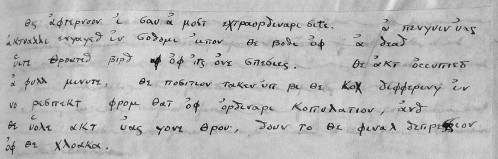 θις ἀφτερνοον ἰ σαυ ἀ μοστ εχτραορδιναρι σιτε. ἀ πενγυιν ὑας
ἀκτυαλλι ενγαγεδ ἰν σοδομι ὐπον θε βοδι ὀφ ἀ δεαδ
ὑιτε θροατεδ βιρδ ὀφ ἰτς ὀνε σπεσιες. θε ἀκτ οccυπιεδ
ἀ φυλλ μινυτε, θε ποσιτιον τακεν ὐπ βι θε κοκ διφφερινγ ἰν
νο ρεσπεκτ φρομ θατ ὀφ ὀρδιναρι κοπυλατιον, ἀνδ
θε ὑολε ακτ ὑας γονε θρου, δουν το θε φιναλ δεπρεσσιον
ὀφ θε χλοακα.